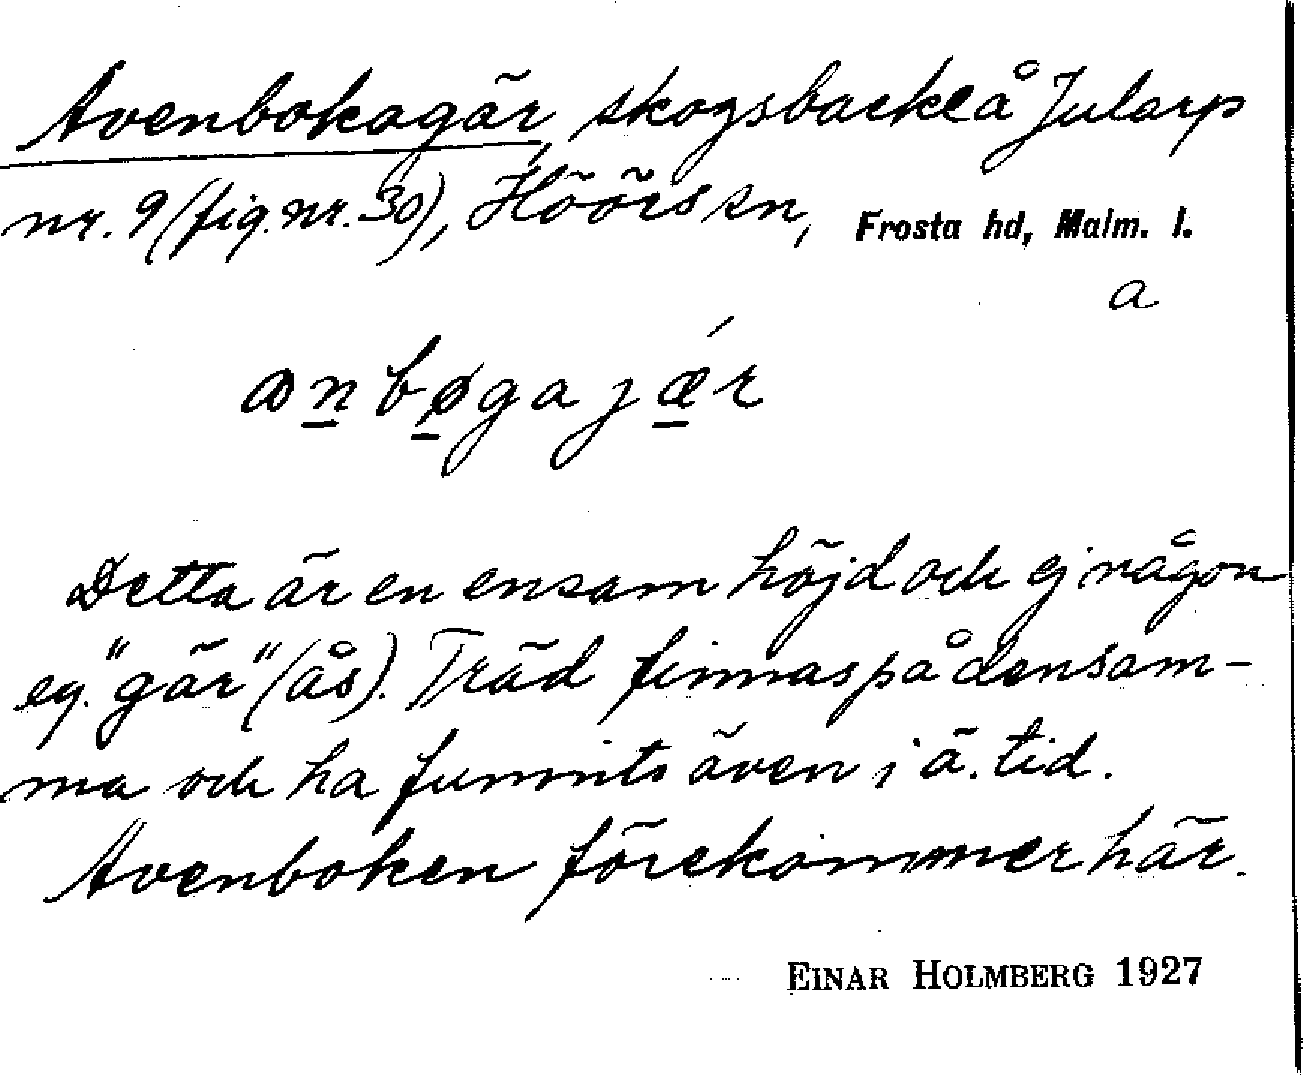 Avenbokagär, skogsbacke å Jularp
nr. 9 (fig. nr. 30), Höörs sn, Frosta hd, Malm. l.
a
anbøgajǽr
Detta är en ensam höjd och ej någon
eg. "gär" (ås). Träd finnas på densam-
ma och ha funnits även i ä. tid.
Avenboken förekommer här.
EINAR HOLMBERG 1927